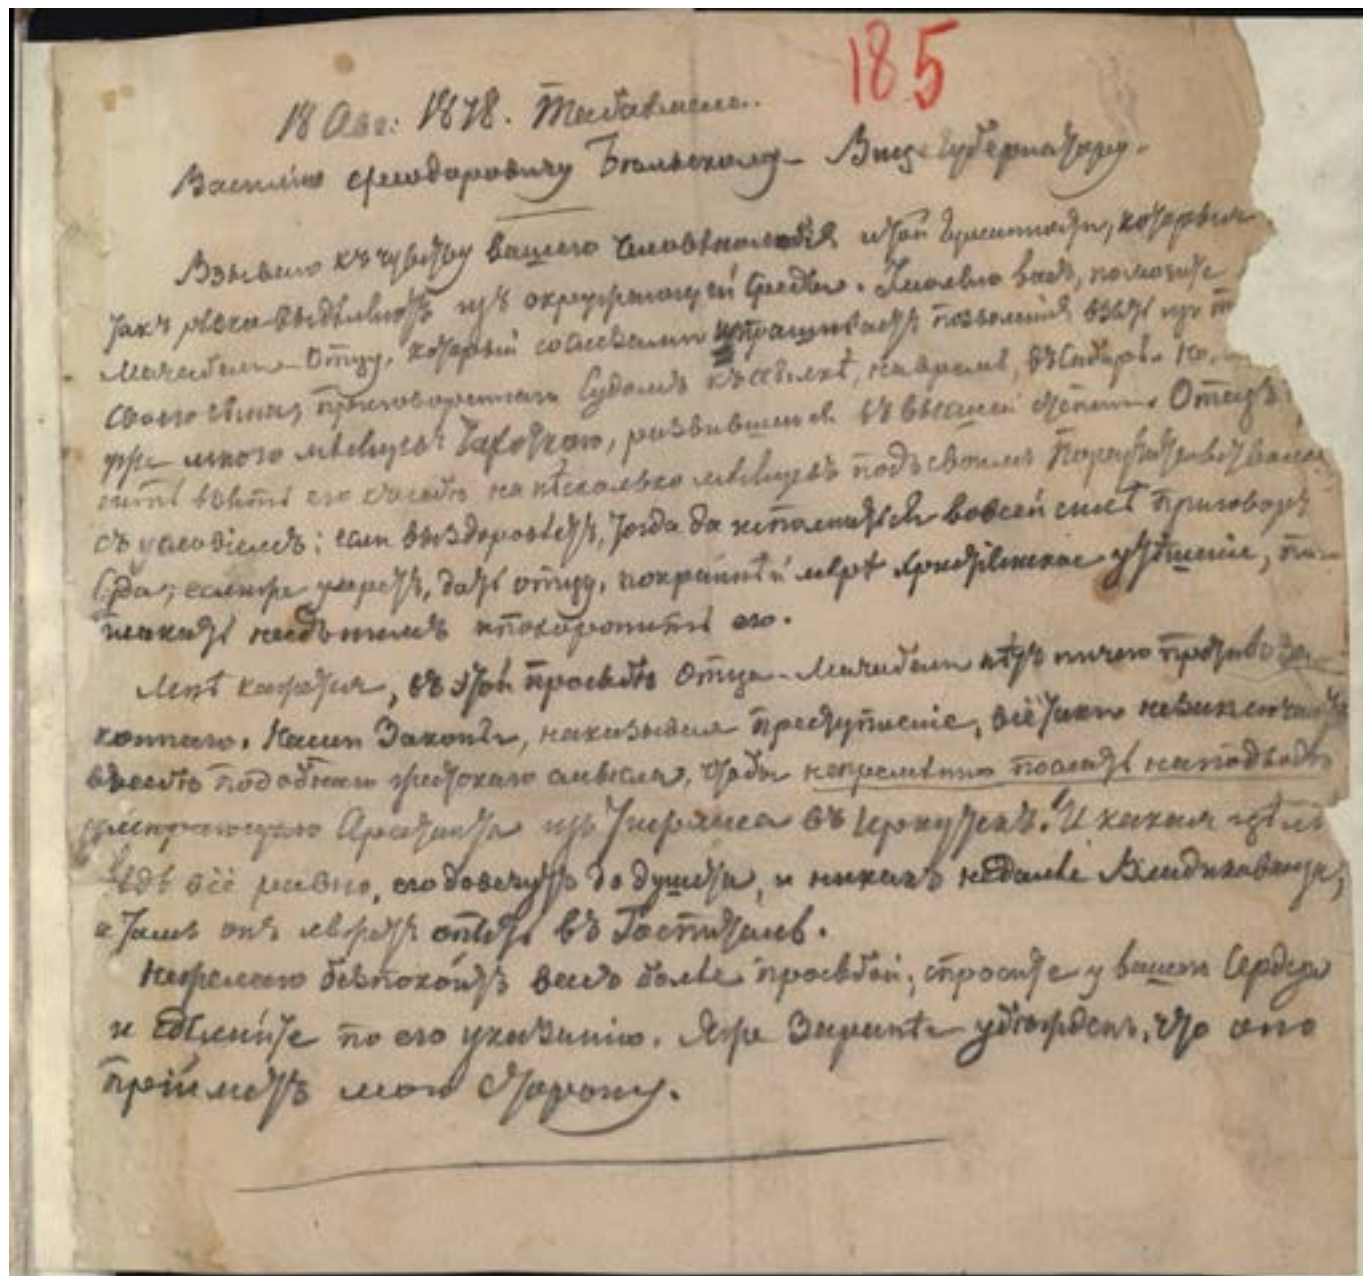 185
18 Авг: 1878. Табахмела.
Василію Феодоровичу Бѣльскому Вице-Губернатору.
Взываю къ чувству вашего человѣколюбія и той гуманности, которыя
такъ рѣзко выдѣляютъ изъ окружающей среды. Умоляю васъ, помогите
Мачабели-Отцу, который со слезами испрашиваетъ позволенія взять изъ
своего сына, приговореннаго Судомъ къ ссылкѣ, на время, въ Сибирь.
уже много мѣсяцевъ чахоткою, развившеюся въ высшей степени. Отецъ
взять его къ себѣ на нѣсколько мѣсяцевъ подъ своимъ
съ условіемъ: если выздоровѣетъ, тогда да исполнится во всей силѣ приговоръ
Суда; если же умретъ, дать отцу, по крайнѣй мѣрѣ христіанское утѣшеніе, по-
плакать надъ нимъ и похоронить его.
Мнѣ кажется, въ этой просьбѣ Отца-Мачабели нѣтъ ничего противоза-
коннаго. Наши Законы, наказывая преступленіе, всё таки не заключаютъ
въ себѣ подобнаго жестокаго смысла, чтобы непремѣнно послать на подводѣ
умирающаго Арестанта изъ Тифлиса въ Иркутскъ. И какая цѣль
вѣдь всё равно, его довезутъ до Душета, и никакъ не далѣе Владикавказа;
а тамъ онъ ляжетъ опять въ Госпиталь.
Не желаю безпокоить васъ болѣе просьбой; спросите у вашего Сердца
и сдѣлайте по его указанію. Я же Заранѣе убѣжденъ, что оно
пріиметъ мою сторону.